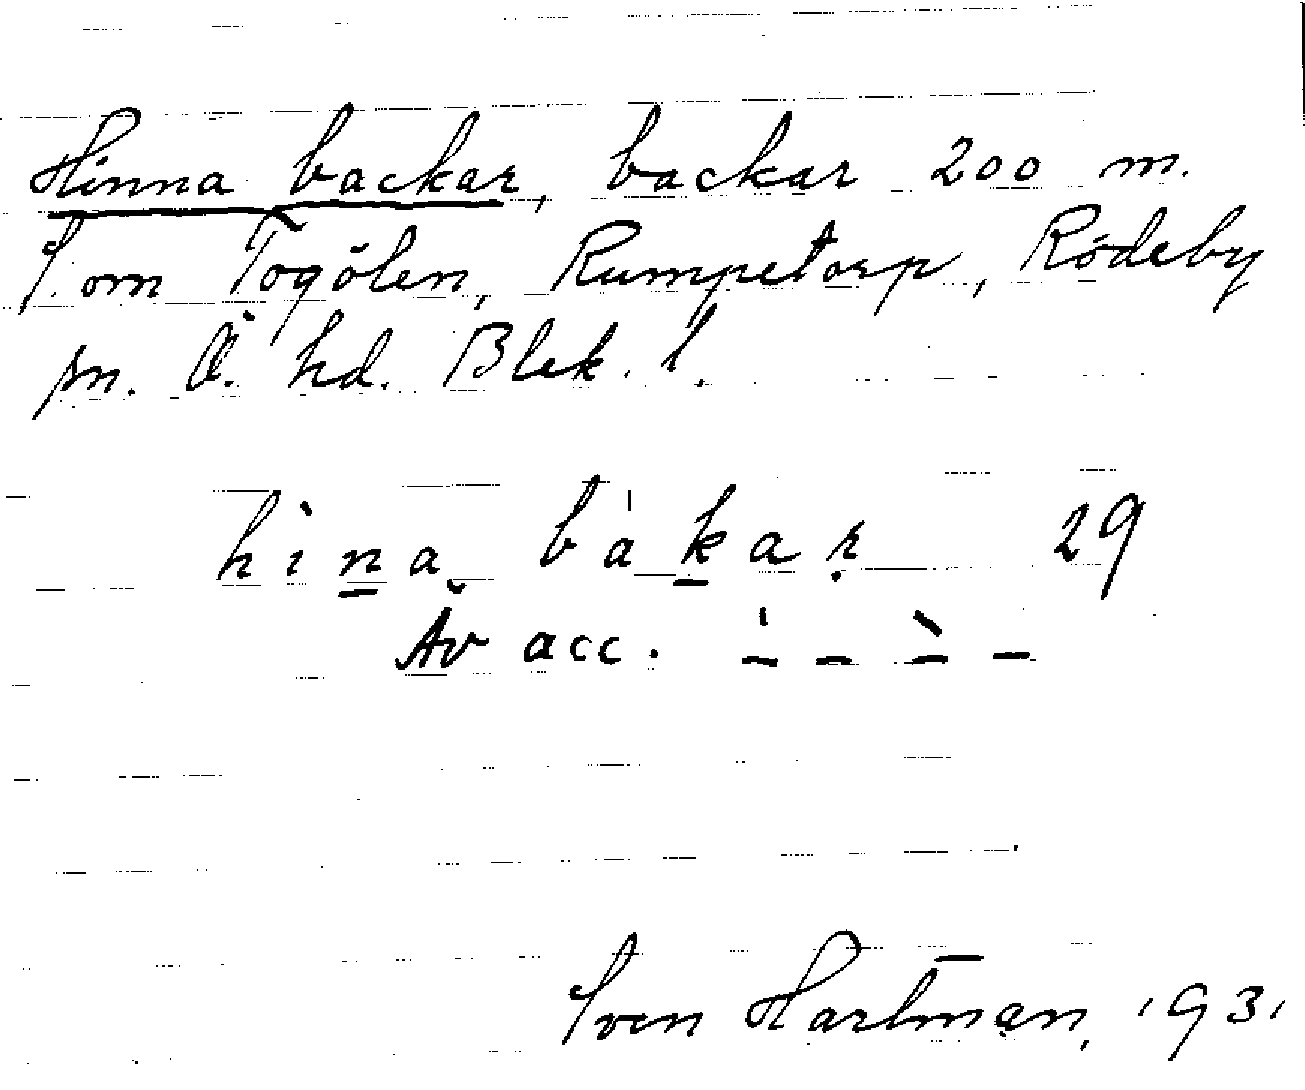 Hinna backar, backar 200 m.
S. om Togölen, Rumpetorp, Rödeby
sn. Ö. hd. Blek. l.
hìna bákar 29
Äv acc. ' - - ` - -
Sven Hartman, 1931